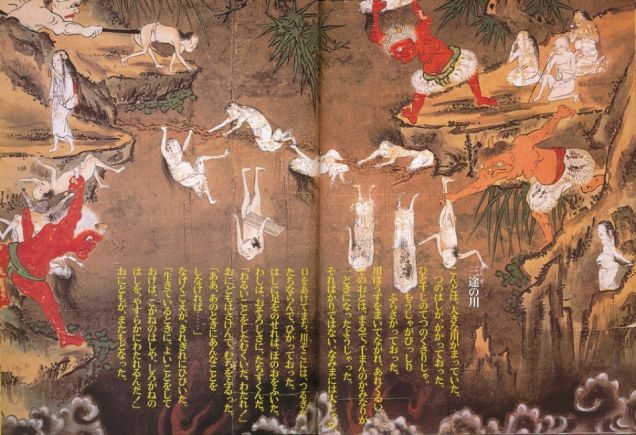 三途の川
こんどは、大きな川がまっていた。
つのはしが、かかっておった。
ひとすじのてつのくさりじゃ。
もうじゃがびっしり
ぶらさがっておった。
川はうずをまいてながれ、あれくるい
そのおとは、まるで、千まんのかみなりが
ときになったようじゃった。
そればかりではない、なみまには大じゃが
口をあけてまち、川ぞこには、つるぎが
たちならんで、ひかっておった。
はしに足をのせれば、ほのおをふいた。
わしは、おそろしさに、たちすくんだ。
「わるいことをしたむくいだ、わたれ！」
おにどもはさけんで、むちをふるった。
「ああ、あのときにあんなことを
しなければ……」
なげくこえが、きれぎれにひびいた。
「生きているときに、よいことをして
おけば、こがねのはしや、しろがねの
はしを、やすらかにわたれるんだ！」
おにどもが、またもどなった。